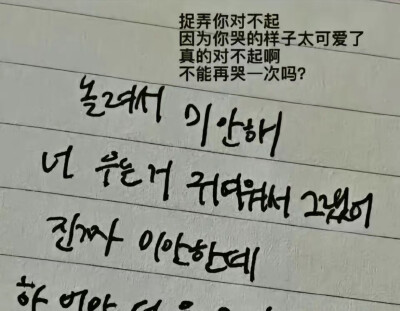 捉弄你对不起
因为你哭的样子太可爱了
真的对不起啊
不能再哭一次吗?
놀려서 미안해
너 우는거 귀여워서 그랬어
진짜 미안한데